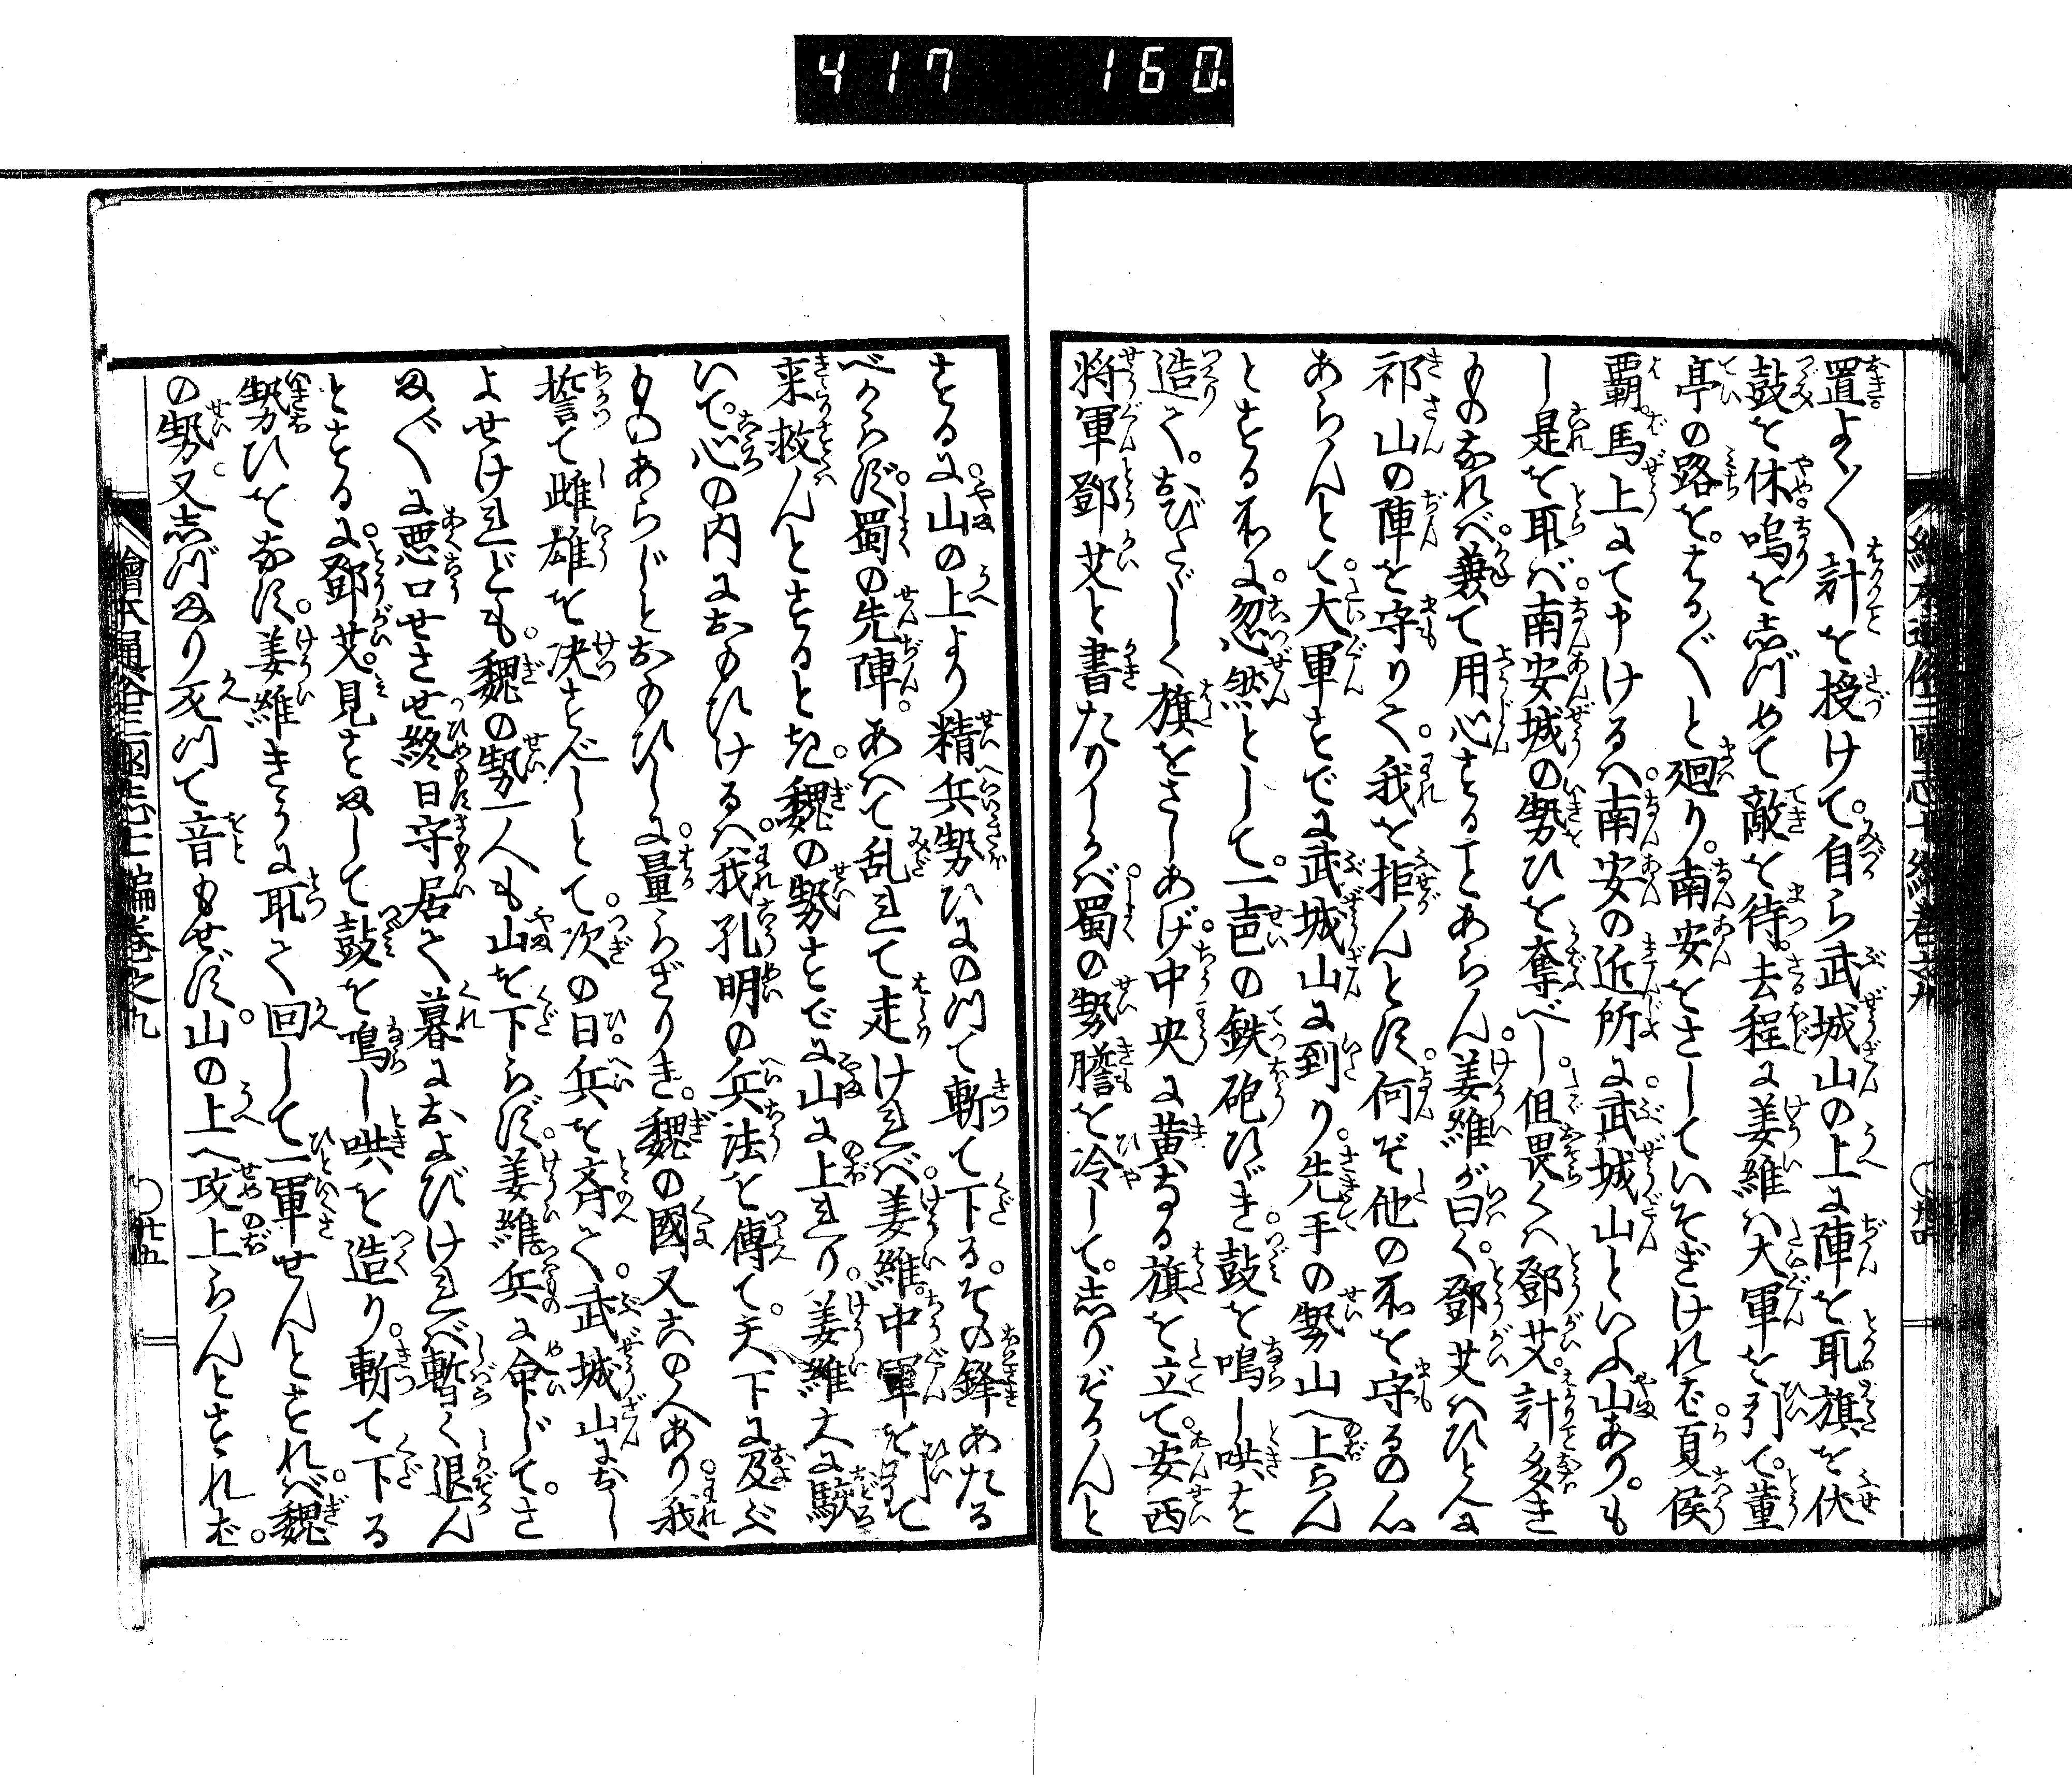 417 160
置よく〳〵計を授けて。自ら武城山の上に陣を取旗を伏
鼓を休鳴を志づめて敵を待。去程に姜維ハ大軍を引て。董
亭の路を。はる〴〵と廻り。南安をさしていそぎけれバ。夏侯
覇。馬上にて申けるハ。南安の近所に。武城山といふ山あり。も
し是を取バ。南安城の勢ひを奪べし。但畏くハ鄧艾。計多き
ものなれバ。兼て用心することあらん。姜維が曰く。鄧艾ハひとへに
祁山の陣を守りて。我を拒んとす。何ぞ他の所を守るの心
あらんとて。大軍すでに武城山に到り。先手の勢山へ上らん
とする所に。忽然として。一声の鉄砲ひゞき。鼓を鳴し哄を
造て。おびたゞしく旗をさしあげ。中央に黄なる旗を立て。安西
将軍鄧艾と書たりしかバ。蜀の勢膽を冷して。志りぞかんと
する に。山の上より精兵勢ひにのつて斬て下る。その鋒あたる
べからず。蜀の先陣。あへて乱れて走けれバ。姜維。中軍を引て
来救んとするとき。魏の勢すでに山に上れり。姜維大に駭
いて。心の内におもひけるハ。我孔明の兵法を傳て。天下に及ぶ
ものあらじとおもひしに。量らざりき。魏の國又この人あり。我
誓て雌雄を决すべしとて。次の日。兵を斉て。武城山におし
よせけれども。魏の勢一人も山を下らず。姜維。兵に命じて。さ
ま〴〵に悪口せさせ。終日守居て暮におよびけれバ。暫く退ん
とするに。鄧艾。見すまして鼓を鳴し哄を造り。斬て下る
勢ひをなす。姜維きうに取て回して一軍せんとすれバ。魏
の勢。又志づまり反つて音もせず。山の上へ攻上らんとすれバ。
繪本通俗三國志七編巻之九 ○廿五